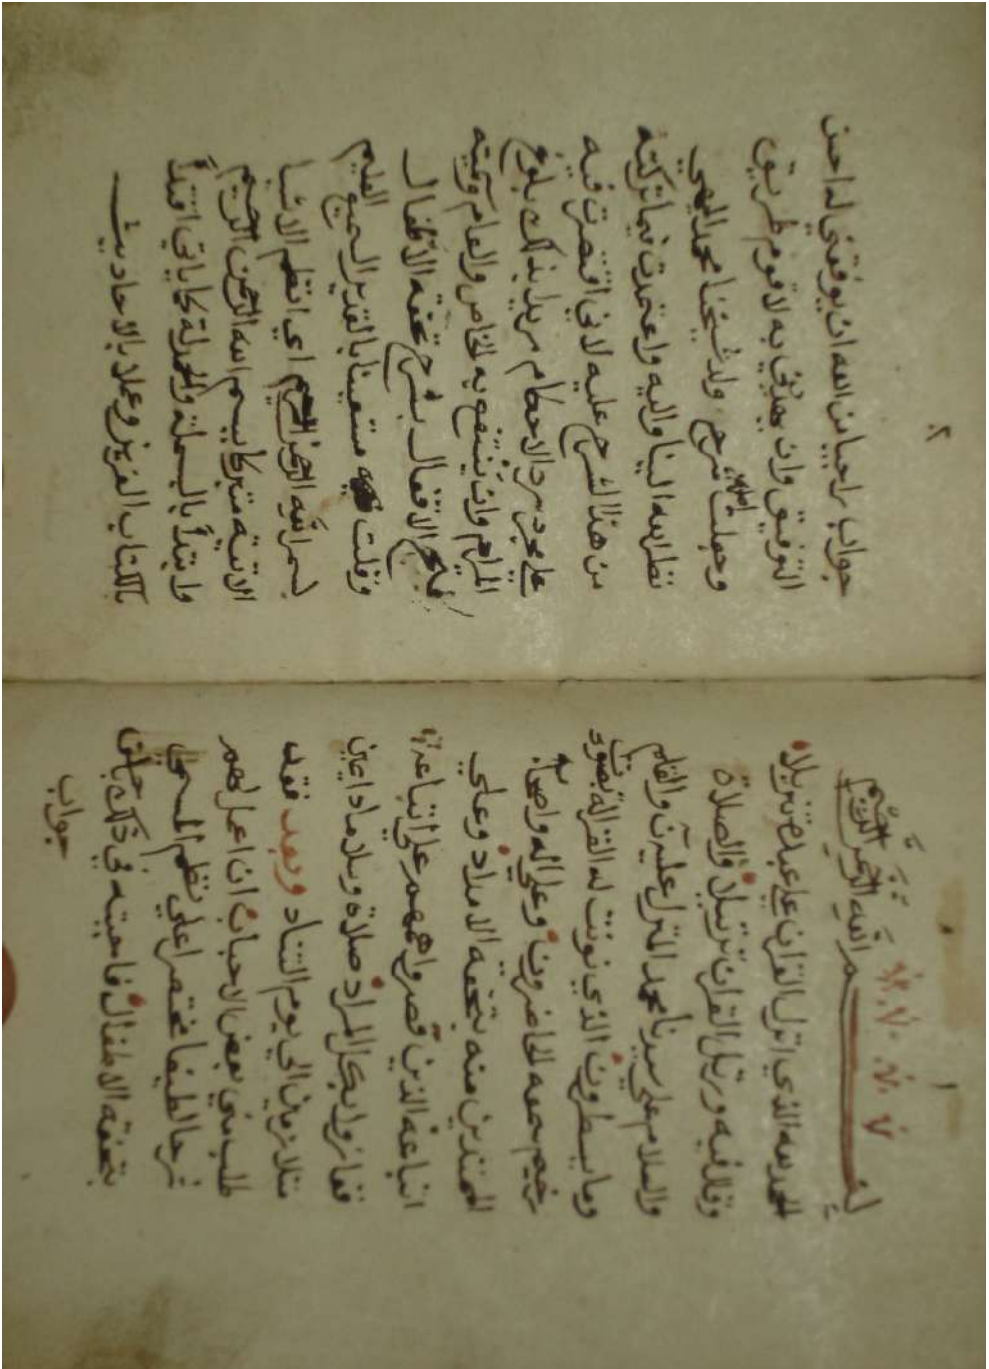 بسم الله الرحمن الرحيم
الحمد لله الذي انزل القران على عبده تنزيلا
وقال فيه ورتل القران ترتيلا والصلاة
والسلام على سيدنا محمد المنزل عليه ن والقلم
وما يسطرون الذي نونت له الغزالة بصوت
رخيم سمعه الحاضرون وعلى اله واصحابه
الممتدين منه بتحفة الامداد وعلى
اتباعه الذين قصروا هممهم على اتباعه
ففازوا بكل المراد صلاة وسلاما دايمين
متلازمين الى يوم التناد وبعد فقد
طلب مني بعض الاحباب ان اعمل لهم
شرحا لطيفا مختصرا على نظم المسمى
بتحفة الاطفال فاجبته في ذلك
جواب
٢
جواب راجيا من الله ان يوفقني له احسن
التوفيق وان يهديني به لاقوم طريق
وجعلت اصله شرح ولد شيخنا محمد الميهي
نظر الله الينا واليه واعتمدت فيما تركته
من هذا الشرح عليه لاني اقتصرت فيه
على مجرد الاحكام مريدا بذلك بلوغ
المرام وان ينتفع به الخاص والعام وسميته
فتح الاقفال بشرح تحفة الاطفال
وقلت مستعينا بالقدير السميع العليم
بسم الله الرحمن الرحيم اي انظم الاشيا
الاتية متبركا ببسم الله الرحمن الرحيم
وابتدأ بالبسملة والحمدلة كما ياتي اقتداً
بالكتاب العزيز وعملا بالاحاديث